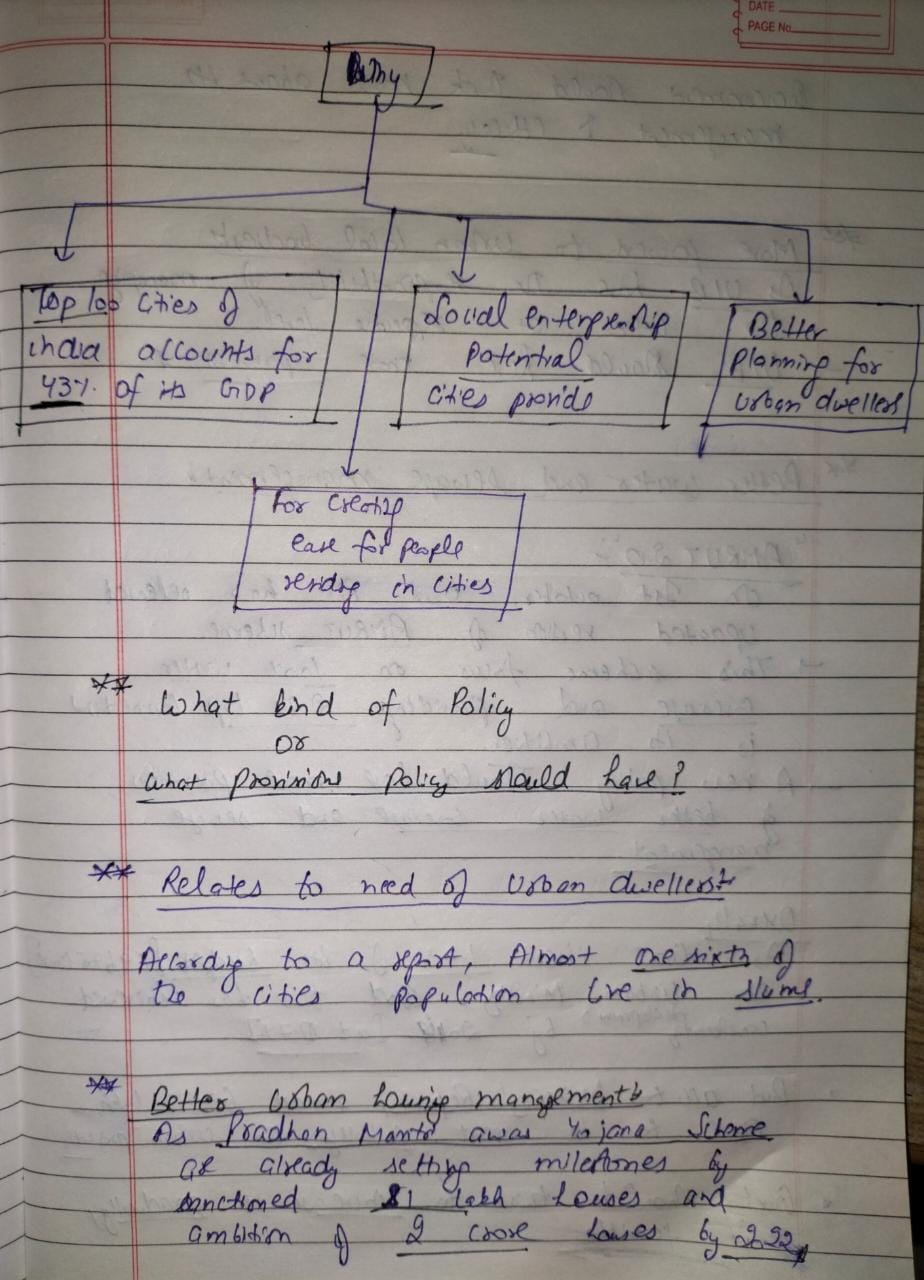 DATE
PAGE No.
Why
Top 100 Cities of
india accounts for
43% of its GDP
Social enterprenship
potential
cities provide
Better
planning for
urban dwellers
For creating
ease for people
residing in cities
** What kind of Policy
or
what provisions policy should have?
** Relates to need of urban dwellers:-
According to a report, Almost one sixth of
the cities population live in slums.
** Better urban housing mangement:-
As Pradhan Mantri awas Yojana Scheme
are already setting milestones by
sanctioned 81 lakh houses and
ambition of 2 crore houses by 2022,